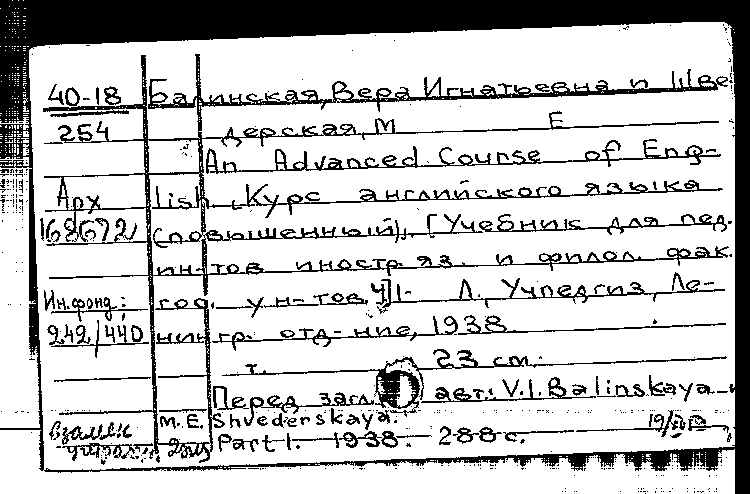 40-18 Балинская, Вера Игнатьевна и Шве
254 дерская, М Е
An Advanced Course of Eng-
Арх lish. Курс английского языка
168672 (повышенный). [Учебник для пед.
ин-тов иностр. яз. и филол. фак.
Ин.фонд.: гос. ун-тов. Ч]1- Л., Учпедгиз, Ле-
242/440 нингр. отд-ние, 1938
т. 23 см.
Перед загл. авт.: V.I. Balinskaya
M.E. Shvederskaya.
взамен Part I. 1938. 288 с.